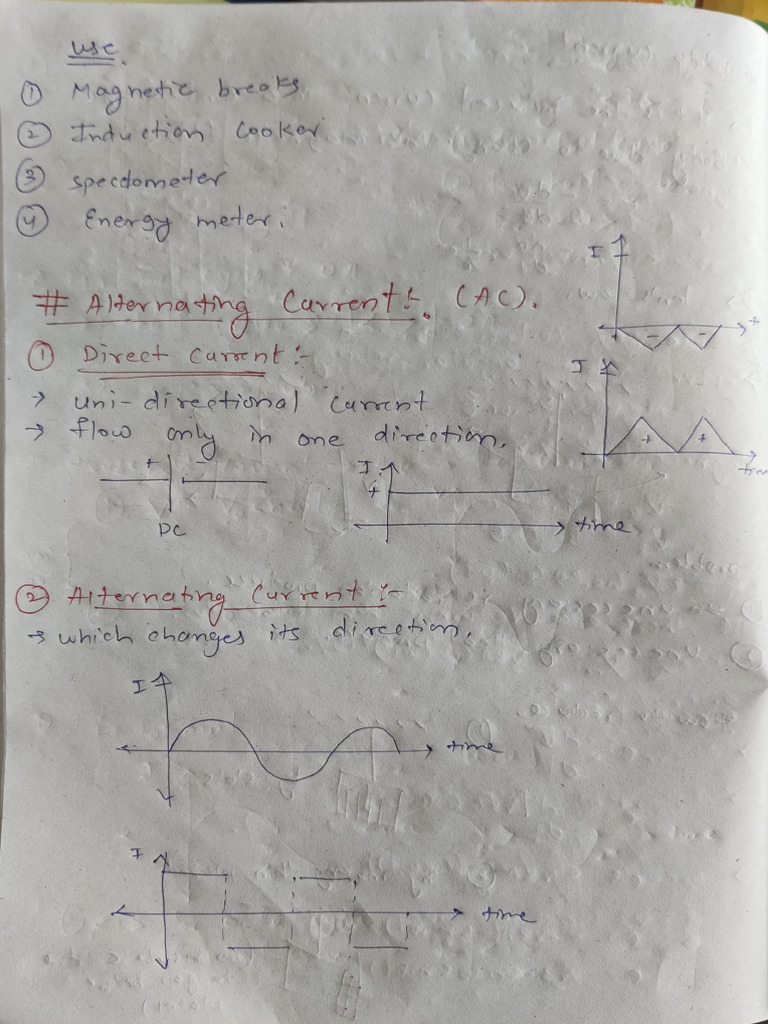 use.
① Magnetic breaks
② Induction Cooker
③ speedometer
④ Energy meter.
# Alternating Current:- (AC).
① Direct Current:-
→ uni-directional current
→ flow only in one direction.
I
t
I
time
+ -
DC
I
+
time
② Alternating Current:-
→ which changes its direction.
I
time
I
time